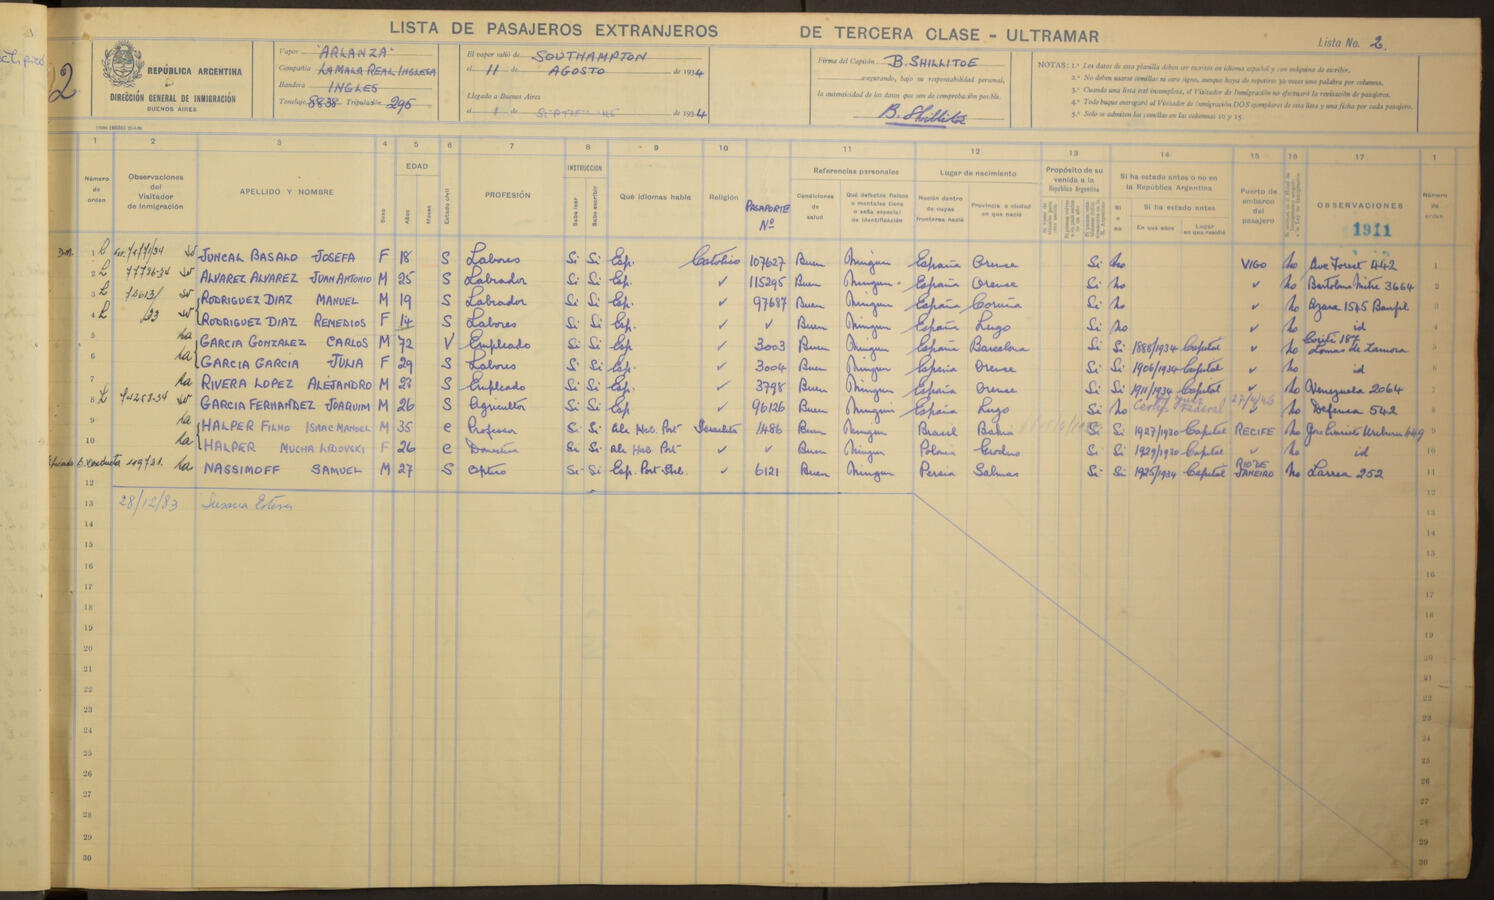 LISTA DE PASAJEROS EXTRANJEROS DE TERCERA CLASE - ULTRAMAR
Lista No. 2.
2
REPÚBLICA ARGENTINA
DIRECCIÓN GENERAL DE INMIGRACIÓN
BUENOS AIRES
Vapor "ARLANZA"
Compañía LA MALA REAL INGLESA
Bandera INGLES
Tonelaje 8838 Tripulación 295
El vapor salió de SOUTHAMPTON
el 11 de AGOSTO de 1934
Llegado a Buenos Aires
el 1 de SEPTIEMBRE de 1934
Firma del Capitán B. SHILLITOE
asegurando, bajo su responsabilidad personal,
la autenticidad de los datos que son de comprobación posible.
B. Shillitoe
NOTAS: 1.° Los datos de esta planilla deben ser escritos en idioma español y con máquina de escribir.
2.° No deben usarse comillas ni otro signo, aunque haya de repetirse 30 veces una palabra por columna.
3.° Cuando una lista esté incompleta, el Visitador de Inmigración no efectuará la revisación de pasajeros.
4.° Todo buque entregará al Visitador de Inmigración DOS ejemplares de esta lista y una ficha por cada pasajero.
5.° Solo se admiten las comillas en las columnas 10 y 15.
1 2 3 4 5 6 7 8 9 10 11 12 13 14 15 16 17 1
Número de orden
Observaciones del Visitador de Inmigración
APELLIDO Y NOMBRE
Sexo
EDAD
Años
Meses
Estado civil
PROFESIÓN
INSTRUCCION
Sabe leer
Sabe escribir
Qué idiomas habla
Religión
PASAPORTE Nº
Referencias personales
Condiciones de salud
Qué defectos físicos o mentales tiene o seña especial de identificación
Lugar de nacimiento
Nación dentro de cuyas fronteras nació
Provincia o ciudad en que nació
Propósito de su venida a la República Argentina
Si ha estado antes o no en la República Argentina
Si o no
Si ha estado antes
En qué años
Lugar en que residió
Puerto de embarco del pasajero
OBSERVACIONES
1911
Número de orden
1 JUNCAL BASALO JOSEFA F 18 S Labores Si Si Esp. Católica 107627 Buen Ningun España Orense Si No VIGO No Ave Forest 442 1
2 77786-34 ALVAREZ ALVAREZ JUAN ANTONIO M 25 S Labrador Si Si Esp. ✓ 115295 Buen Ningun España Orense Si No ✓ No Bartolome Mitre 3664 2
3 RODRIGUEZ DIAZ MANUEL M 19 S Labrador Si Si Esp. ✓ 97687 Buen Ningun España Coruña Si No ✓ No Azara 1545 Banfil 3
4 RODRIGUEZ DIAZ REMEDIOS F 14 S Labores Si Si Esp. ✓ ✓ Buen Ningun España Lugo Si No ✓ No id 4
5 GARCIA GONZALEZ CARLOS M 72 V Empleado Si Si Esp ✓ 3003 Buen Ningun España Barcelona Si Si 1888/1934 Capital ✓ No Lomas de Zamora 5
6 GARCIA GARCIA JULIA F 29 S Labores Si Si Esp. ✓ 3004 Buen Ningun España Orense Si Si 1906/1934 Capital ✓ No id 6
7 RIVERA LOPEZ ALEJANDRO M 28 S Empleado Si Si Esp. ✓ 3798 Buen Ningun España Orense Si Si 1911/1934 Capital ✓ No Venezuela 2064 7
8 GARCIA FERNANDEZ JOAQUIM M 26 S Agricultor Si Si Esp ✓ 96126 Buen Ningun España Lugo Si No Certif. Federal 27/4/46 ✓ No Defensa 542 8
9 HALPER FILHO ISAC MANOEL M 35 C Profesor Si Si Israelita 1486 Buen Ningun Brasil Bahia Si Si 1927/1930 Capital RECIFE No 9
10 HALPER F 26 C Si Si ✓ ✓ Buen Ningun Polonia Si Si 1929/1930 Capital ✓ No id 10
11 NASSIMOFF SAMUEL M 27 S Si Si ✓ 6121 Buen Ningun Persia Salmas Si Si 1925/1934 Capital RIO DE JANEIRO No Larrea 252 11
12 12
13 28/12/83 Susana Esteves 13
14 14
15 15
16 16
17 17
18 18
19 19
20 20
21 21
22 22
23 23
24 24
25 25
26 26
27 27
28 28
29 29
30 30